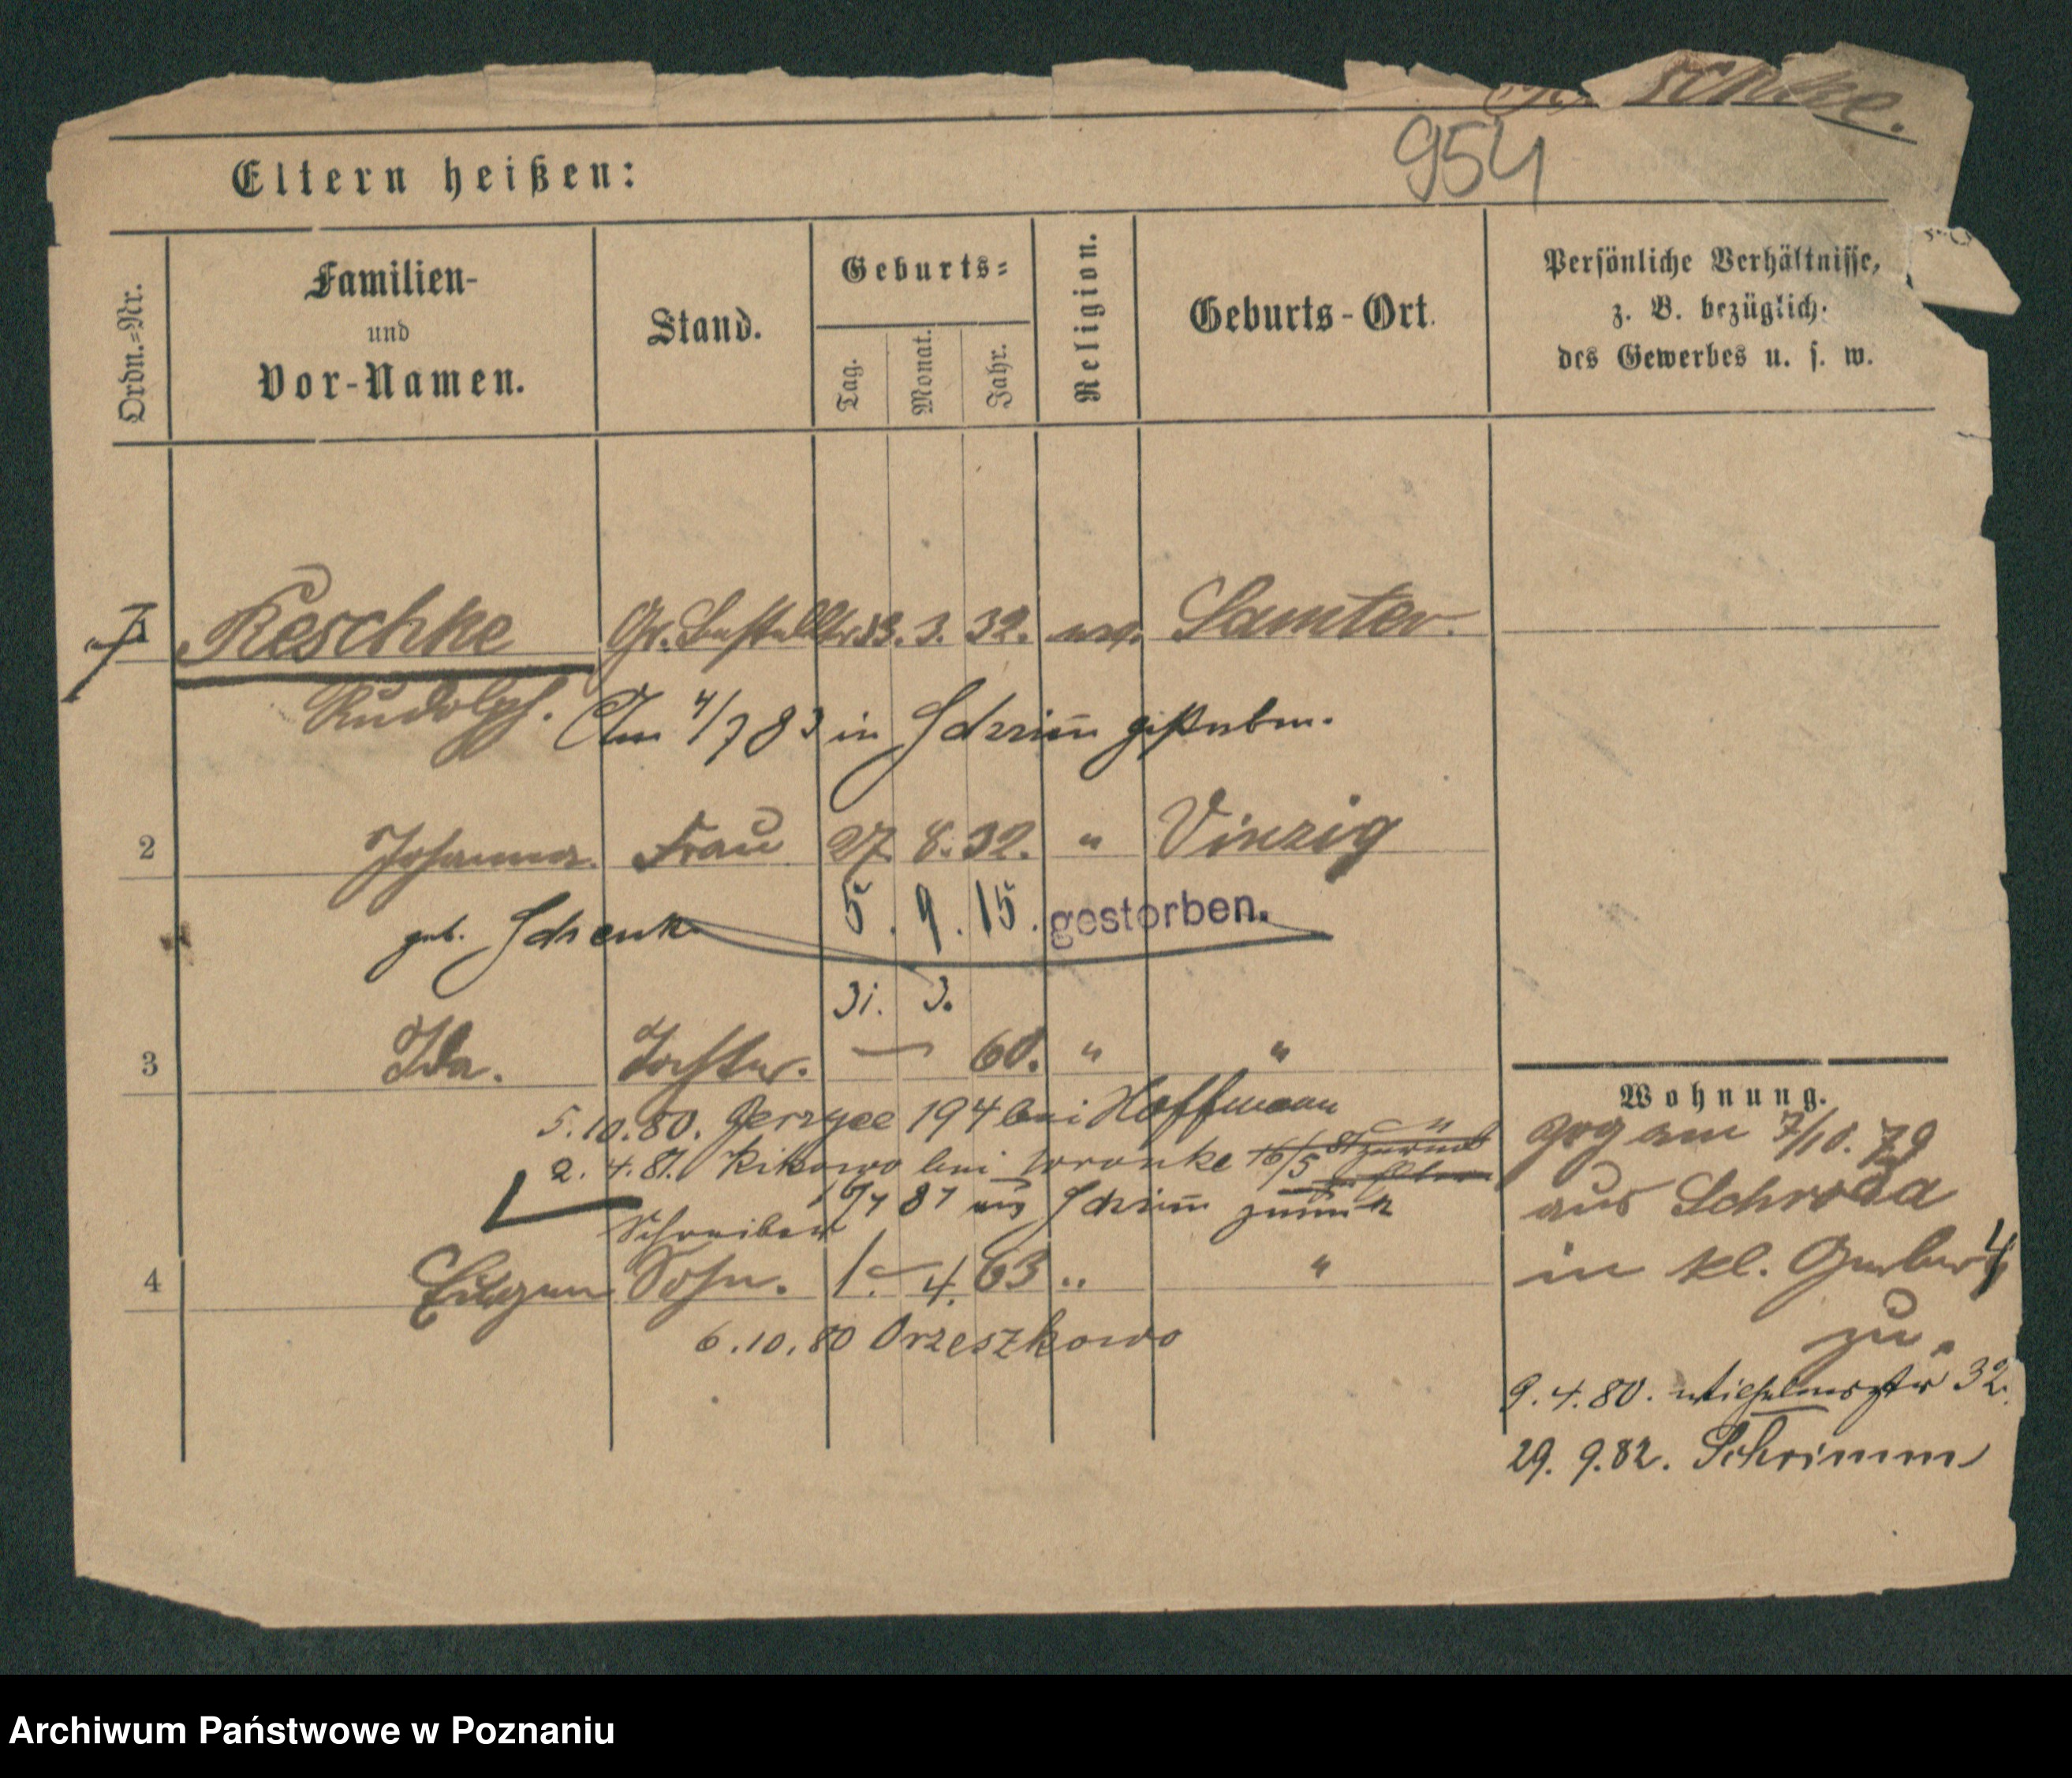 schke.
954
Eltern heißen:
Ordn.=Nr.
Familien-
und
Vor-Namen.
Stand.
Geburts=
Tag.
Monat.
Jahr.
Religion.
Geburts-Ort.
Persönliche Verhältnisse,
z. B. bezüglich
des Gewerbes u. s. w.
1 Reschke 3. 32. Samter.
Rudolph. Am 4/7 83 in Schrim̄ gestorben.
2 Johanna Frau 27. 8. 32. " Vinzig
geb. Schenk 5. 9. 15. gestorben.
31. 3.
3 Ida. Tochter. — 60. " "
5.10.80. Gerzyce 194 bei Hoffmann
2. 4. 81. Kikowo bei Wronke 16/5 81 zurück
87 aus Schrim̄ zurück
Schreiber
4 Eugen Sohn. 1. 4. 63 " "
6.10.80 Orzeszkowo
Wohnung.
zog am 7/10. 79
aus Schroda
in kl. Gerber 4
zu.
9. 4. 80. Wilhelmsstr 32.
29. 9. 82. Schrimm
Archiwum Państwowe w Poznaniu